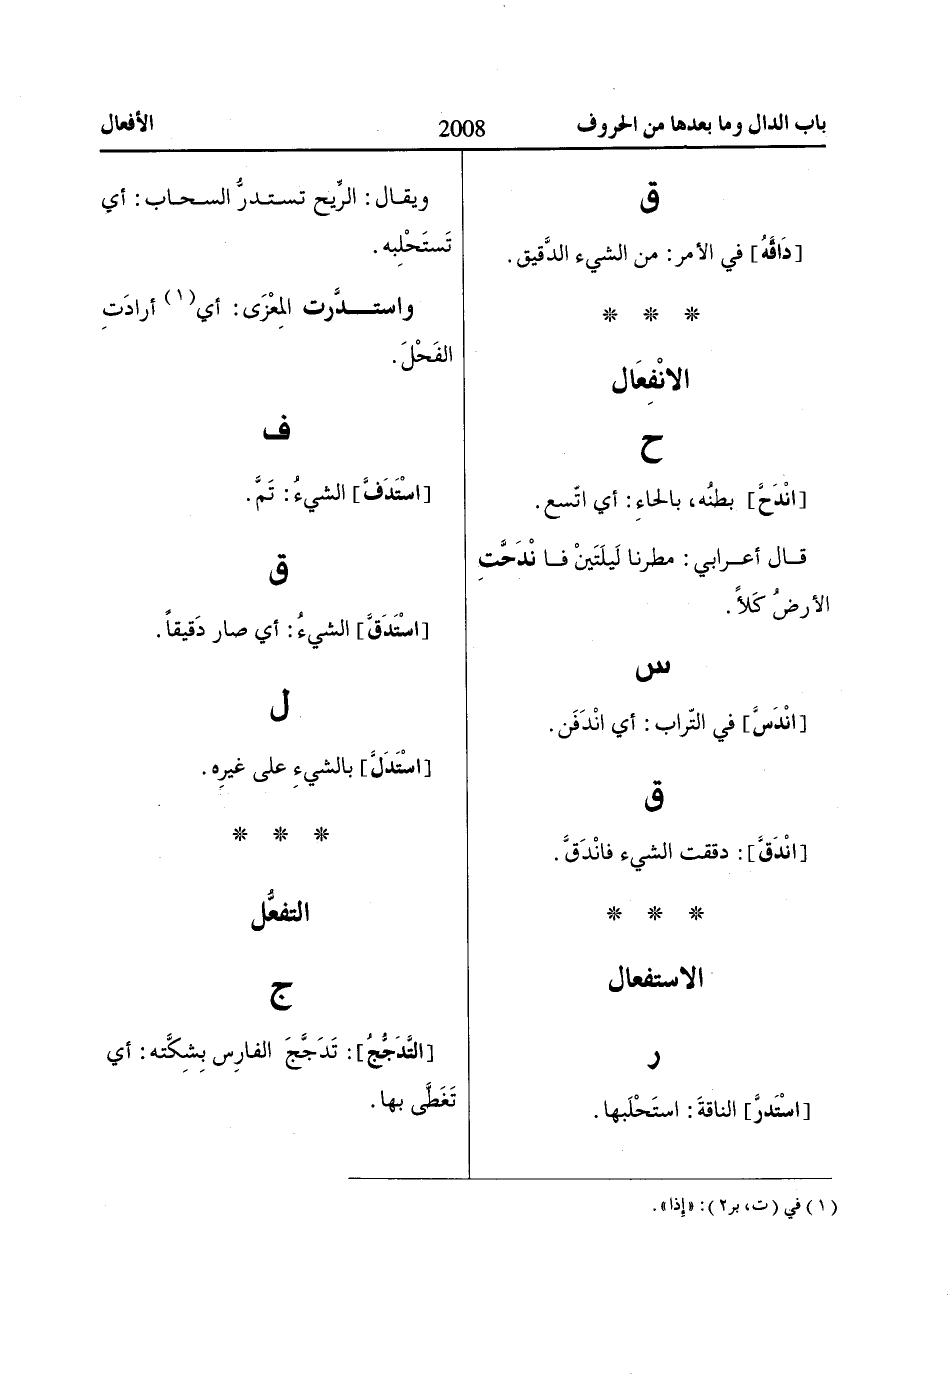 باب الدال وما بعدها من الحروف
2008
الأفعال
ق
[دَاقَّهُ] في الأمر: من الشيء الدَّقيق.
* * *
الانْفِعَال
ح
[انْدَحَّ] بطنُه، بالحاءِ: أي اتّسع.
قال أعرابي: مطرنا لَيلَتَينْ فا نْدَحَّتِ
الأرضُ كَلأً.
س
[انْدَسَّ] في التّراب: أي انْدَفَن.
ق
[انْدَقَّ]: دققت الشيء فانْدَقَّ.
* * *
الاستفعال
ر
[استَدرَّ] الناقةَ: استَحْلَبها.
ويقال: الرِّيح تستدرُّ السحاب: أي
تَستَحْلِبه.
واستدَّرت المِعْزَى: أي(١) أرادَتِ
الفَحْلَ.
ف
[اسْتَدَفَّ] الشيءُ: تَمَّ.
ق
[اسْتَدَقَّ] الشيءُ: أي صار دَقيقاً.
ل
[اسْتَدَلَّ] بالشيءِ على غيرِه.
* * *
التفعُّل
ج
[التَّدَجُّجُ]: تَدَجَّجَ الفارِس بِشِكَّته: أي
تَغَطَّى بها.
(١) في (ت، بر٢): «إذا».